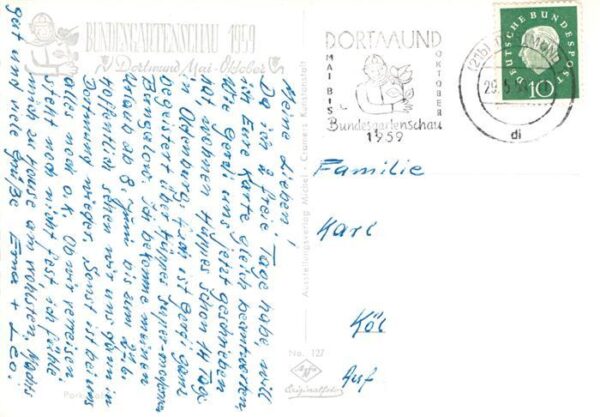 BUNDESGARTENSCHAU 1959
Dortmund Mai-Oktober
Meine Lieben!
Da ich 2 freie Tage habe will
ich Eure Karte gleich beantworten.
Wie Gerdi uns jetzt geschrieben
hat wohnen Hüppes schon 14 Tage
in Oldenburg, u. ist Gerdi ganz
begeistert über Hüppes super-modernen
Bungelow. Ich bekomme meinen
Urlaub ab 8. Juni bis zum 27.6.
Hoffentlich sehen wir uns dann in
Dortmund wieder. Sonst ist bei uns
alles noch o.k. Ob wir verreisen
steht noch nicht fest ich fühle
mich zu Hause am wohlsten. Nachts
gest und viele Grüße Erna + Leo.
Ausstellungsverlag Michel - Cramers Kunstanstalt
No. 127
Agfa
Originalfoto
DORTMUND
MAI BIS
OKTOBER
Bundesgartenschau
1959
(21b) DORTMUND
29.5.
di
DEUTSCHE BUNDESPOST
10
Familie
Karl
Köl
Auf